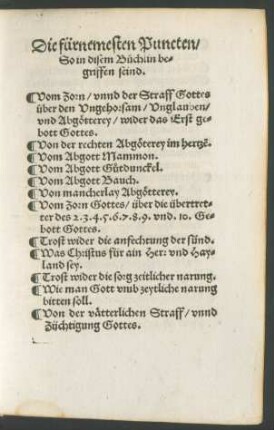 Die fürnemesten Puncten/
So in disem Büchlin be-
griffen seind.
¶Vom Zorn/ vnnd der Straff Gottes
über den Vngehorsam/ Vnglauben/
vnd Abgötterey/ wider das Erst ge-
bott Gottes.
¶Von der rechten Abgöterey im hertzẽ.
¶Vom Abgott Mammon.
¶Vom Abgott Gütdunckel.
¶Vom Abgott Bauch.
¶Von mancherlay Abgötterey.
¶Vom Zorn Gottes/ über die übertret-
ter des 2.3.4.5.6.7.8.9. vnd. 10. Ge-
bott Gottes.
¶Trost wider die anfechtung der sünd.
¶Was Christus für ain Herr vnd Hay-
land sey.
¶Trost wider die sorg zeitlicher narung.
¶Wie man Gott vmb zeytliche narung
bitten soll.
¶Von der vätterlichen Straff/ vnnd
Züchtigung Gottes.